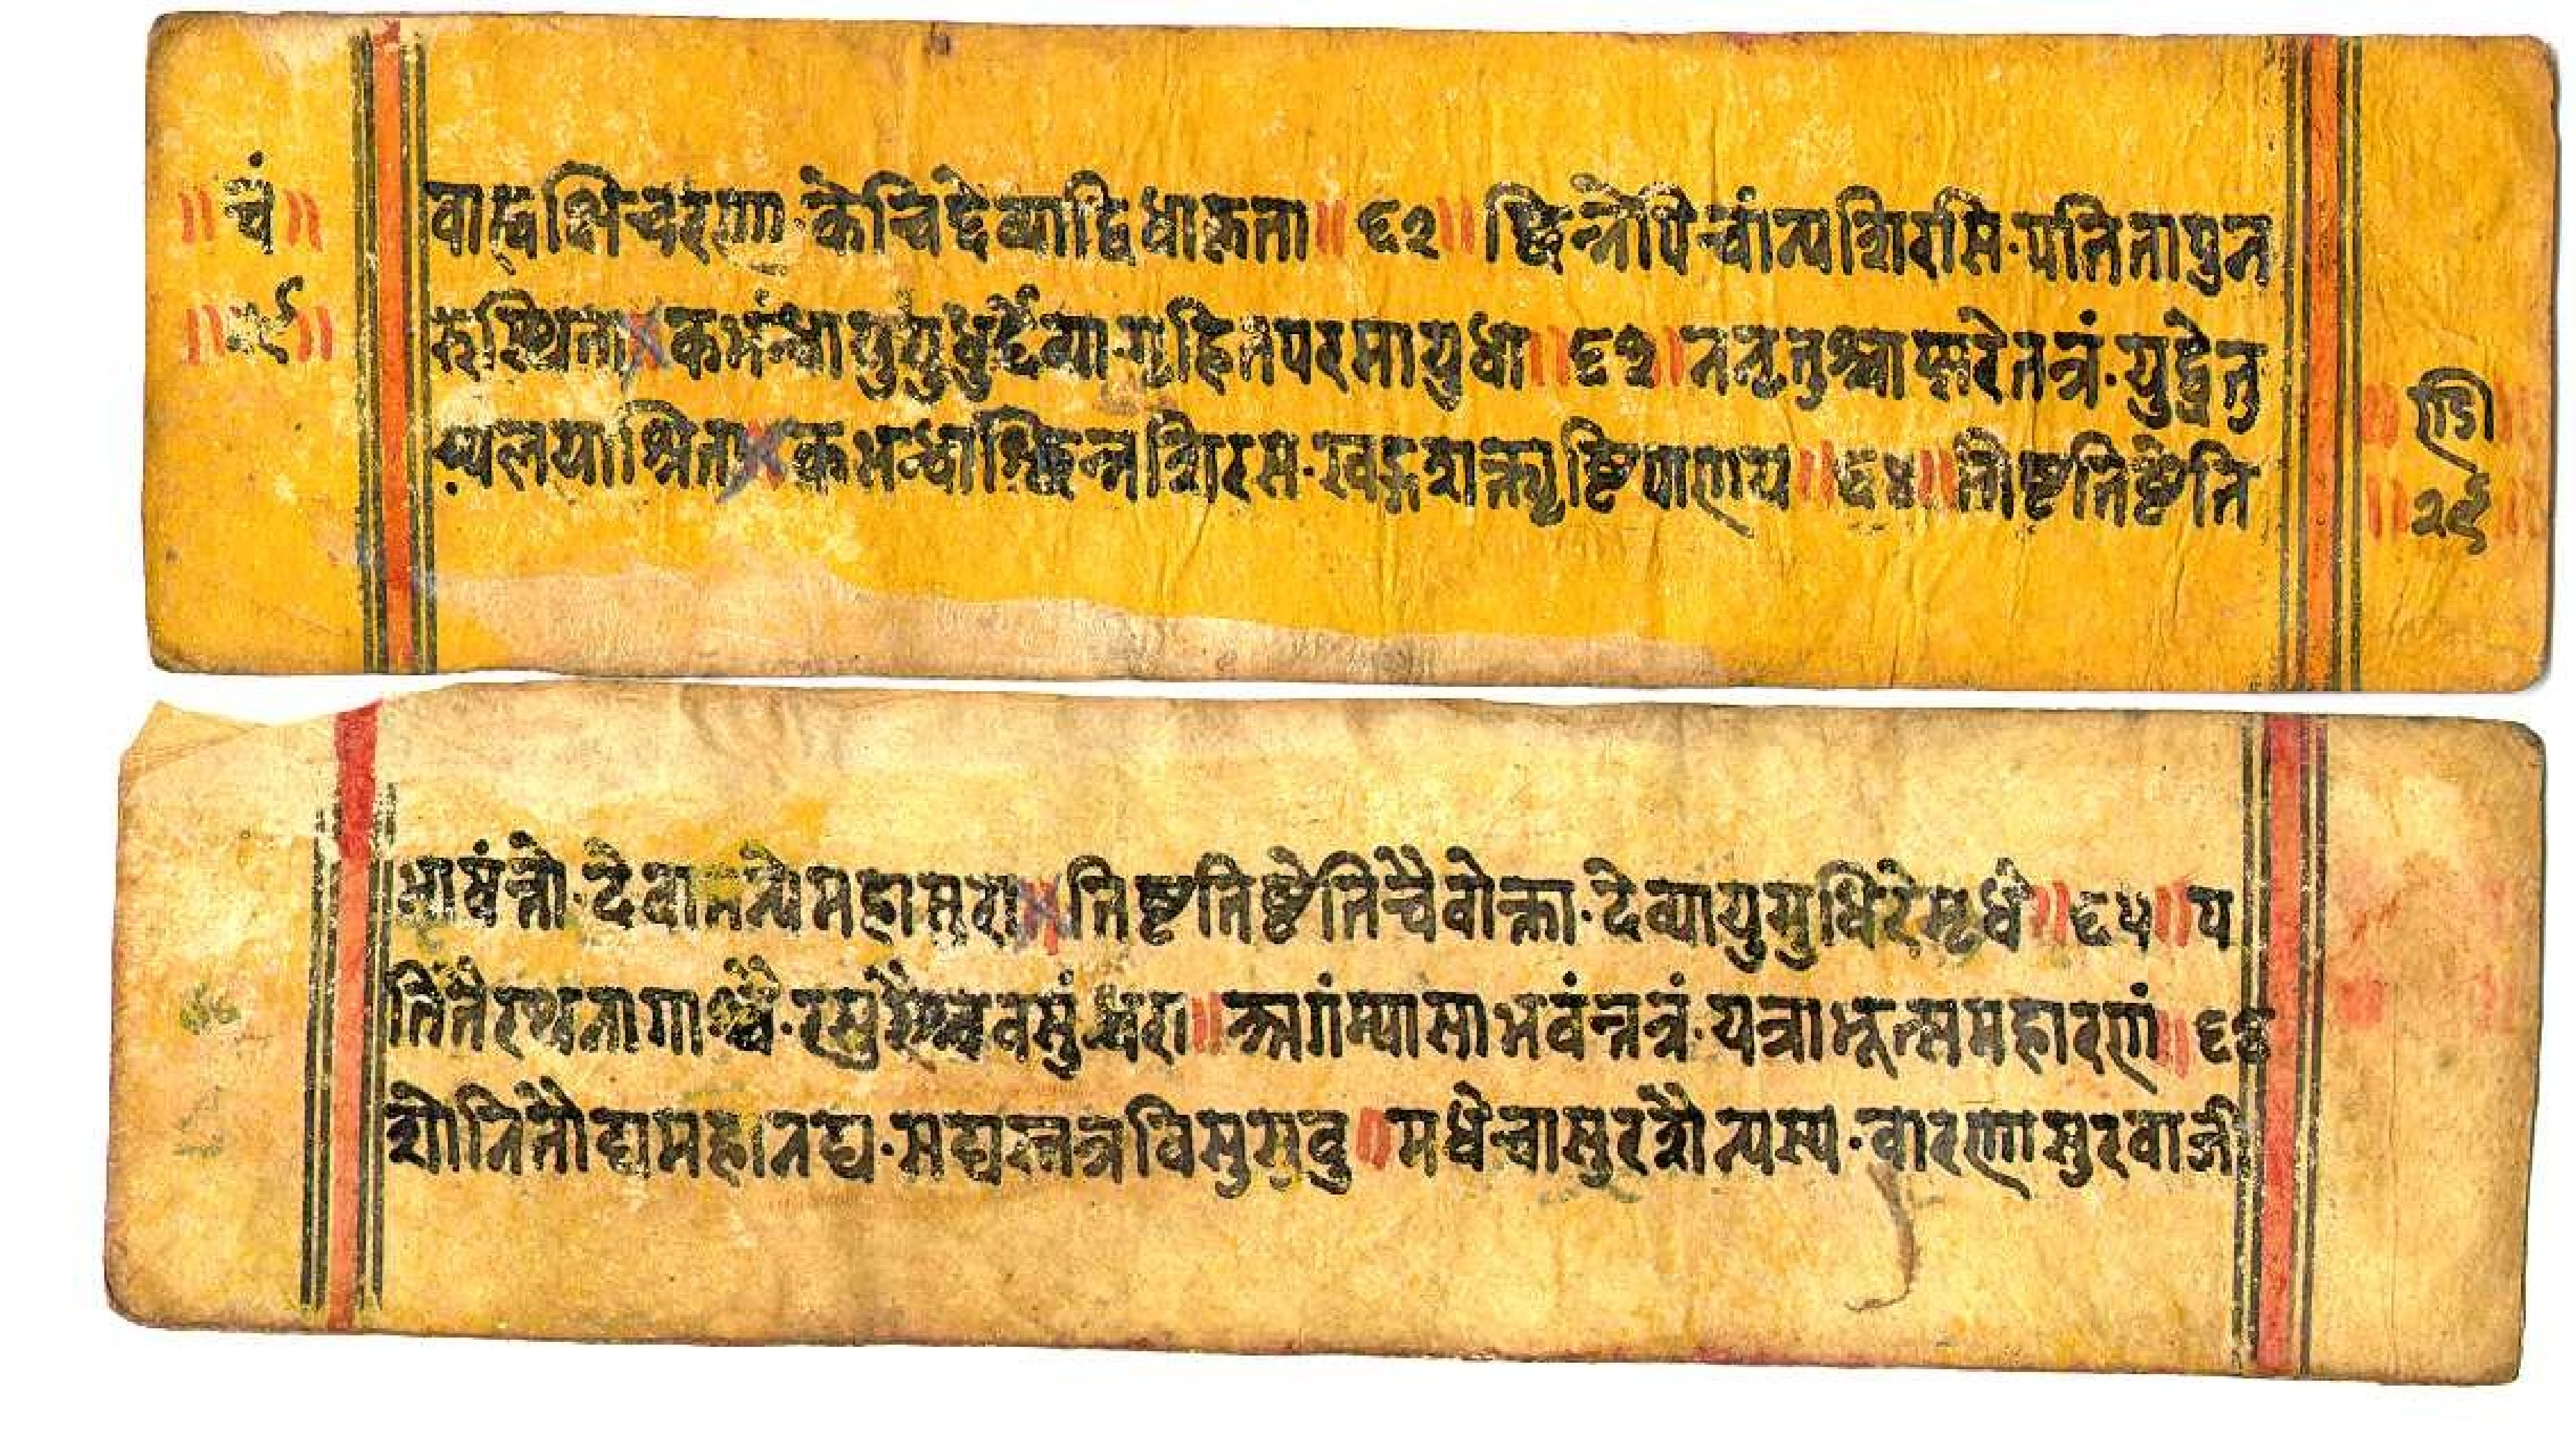 चं
२९
वाह्वक्षिचरणा केचिद्देव्याद्विधाकृता ॥ ६२ ॥ छिन्नेपि चांन्यशिरसि पतितापुन
रुस्थिता कभंन्धायुयुधुर्द्देव्या गृहितपरमायुधा ॥ ६३ ॥ ननृतुश्चाफरेतत्रं युद्धेतु
र्य्यलयाश्रिता कभन्धाश्छिन्नशिरस खड्गशक्त्यृष्टिपाणय ॥ ६४ ॥ तिष्टतिष्टेति
डी
२९
भाषंन्तो देवीमन्येमहासुरा तिष्टतिष्टेतिचैवोक्ता देव्यायुयुधिरेमृधे ॥ ६५ ॥ प
तितैरथनागाश्वै रसुरैश्चवसुंन्धरा ॥ अगंम्यासाभवंत्तत्रं यत्राभूत्समहारणं ॥ ६६
शोनितौद्यामहानद्य सद्यस्तत्रविसुसुवु ॥ मधेचासुरसैन्यस्य वारणासुरवाजी